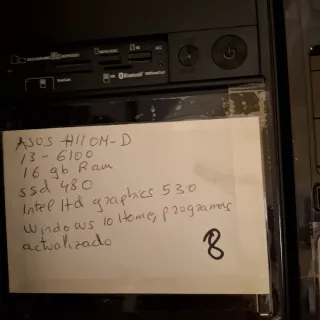 Bluetooth
ASUS H110M-D
i3-6100
16 gb Ram
ssd 480
Intel Hd graphics 530
Windows 10 Home, programas
actualizado
8